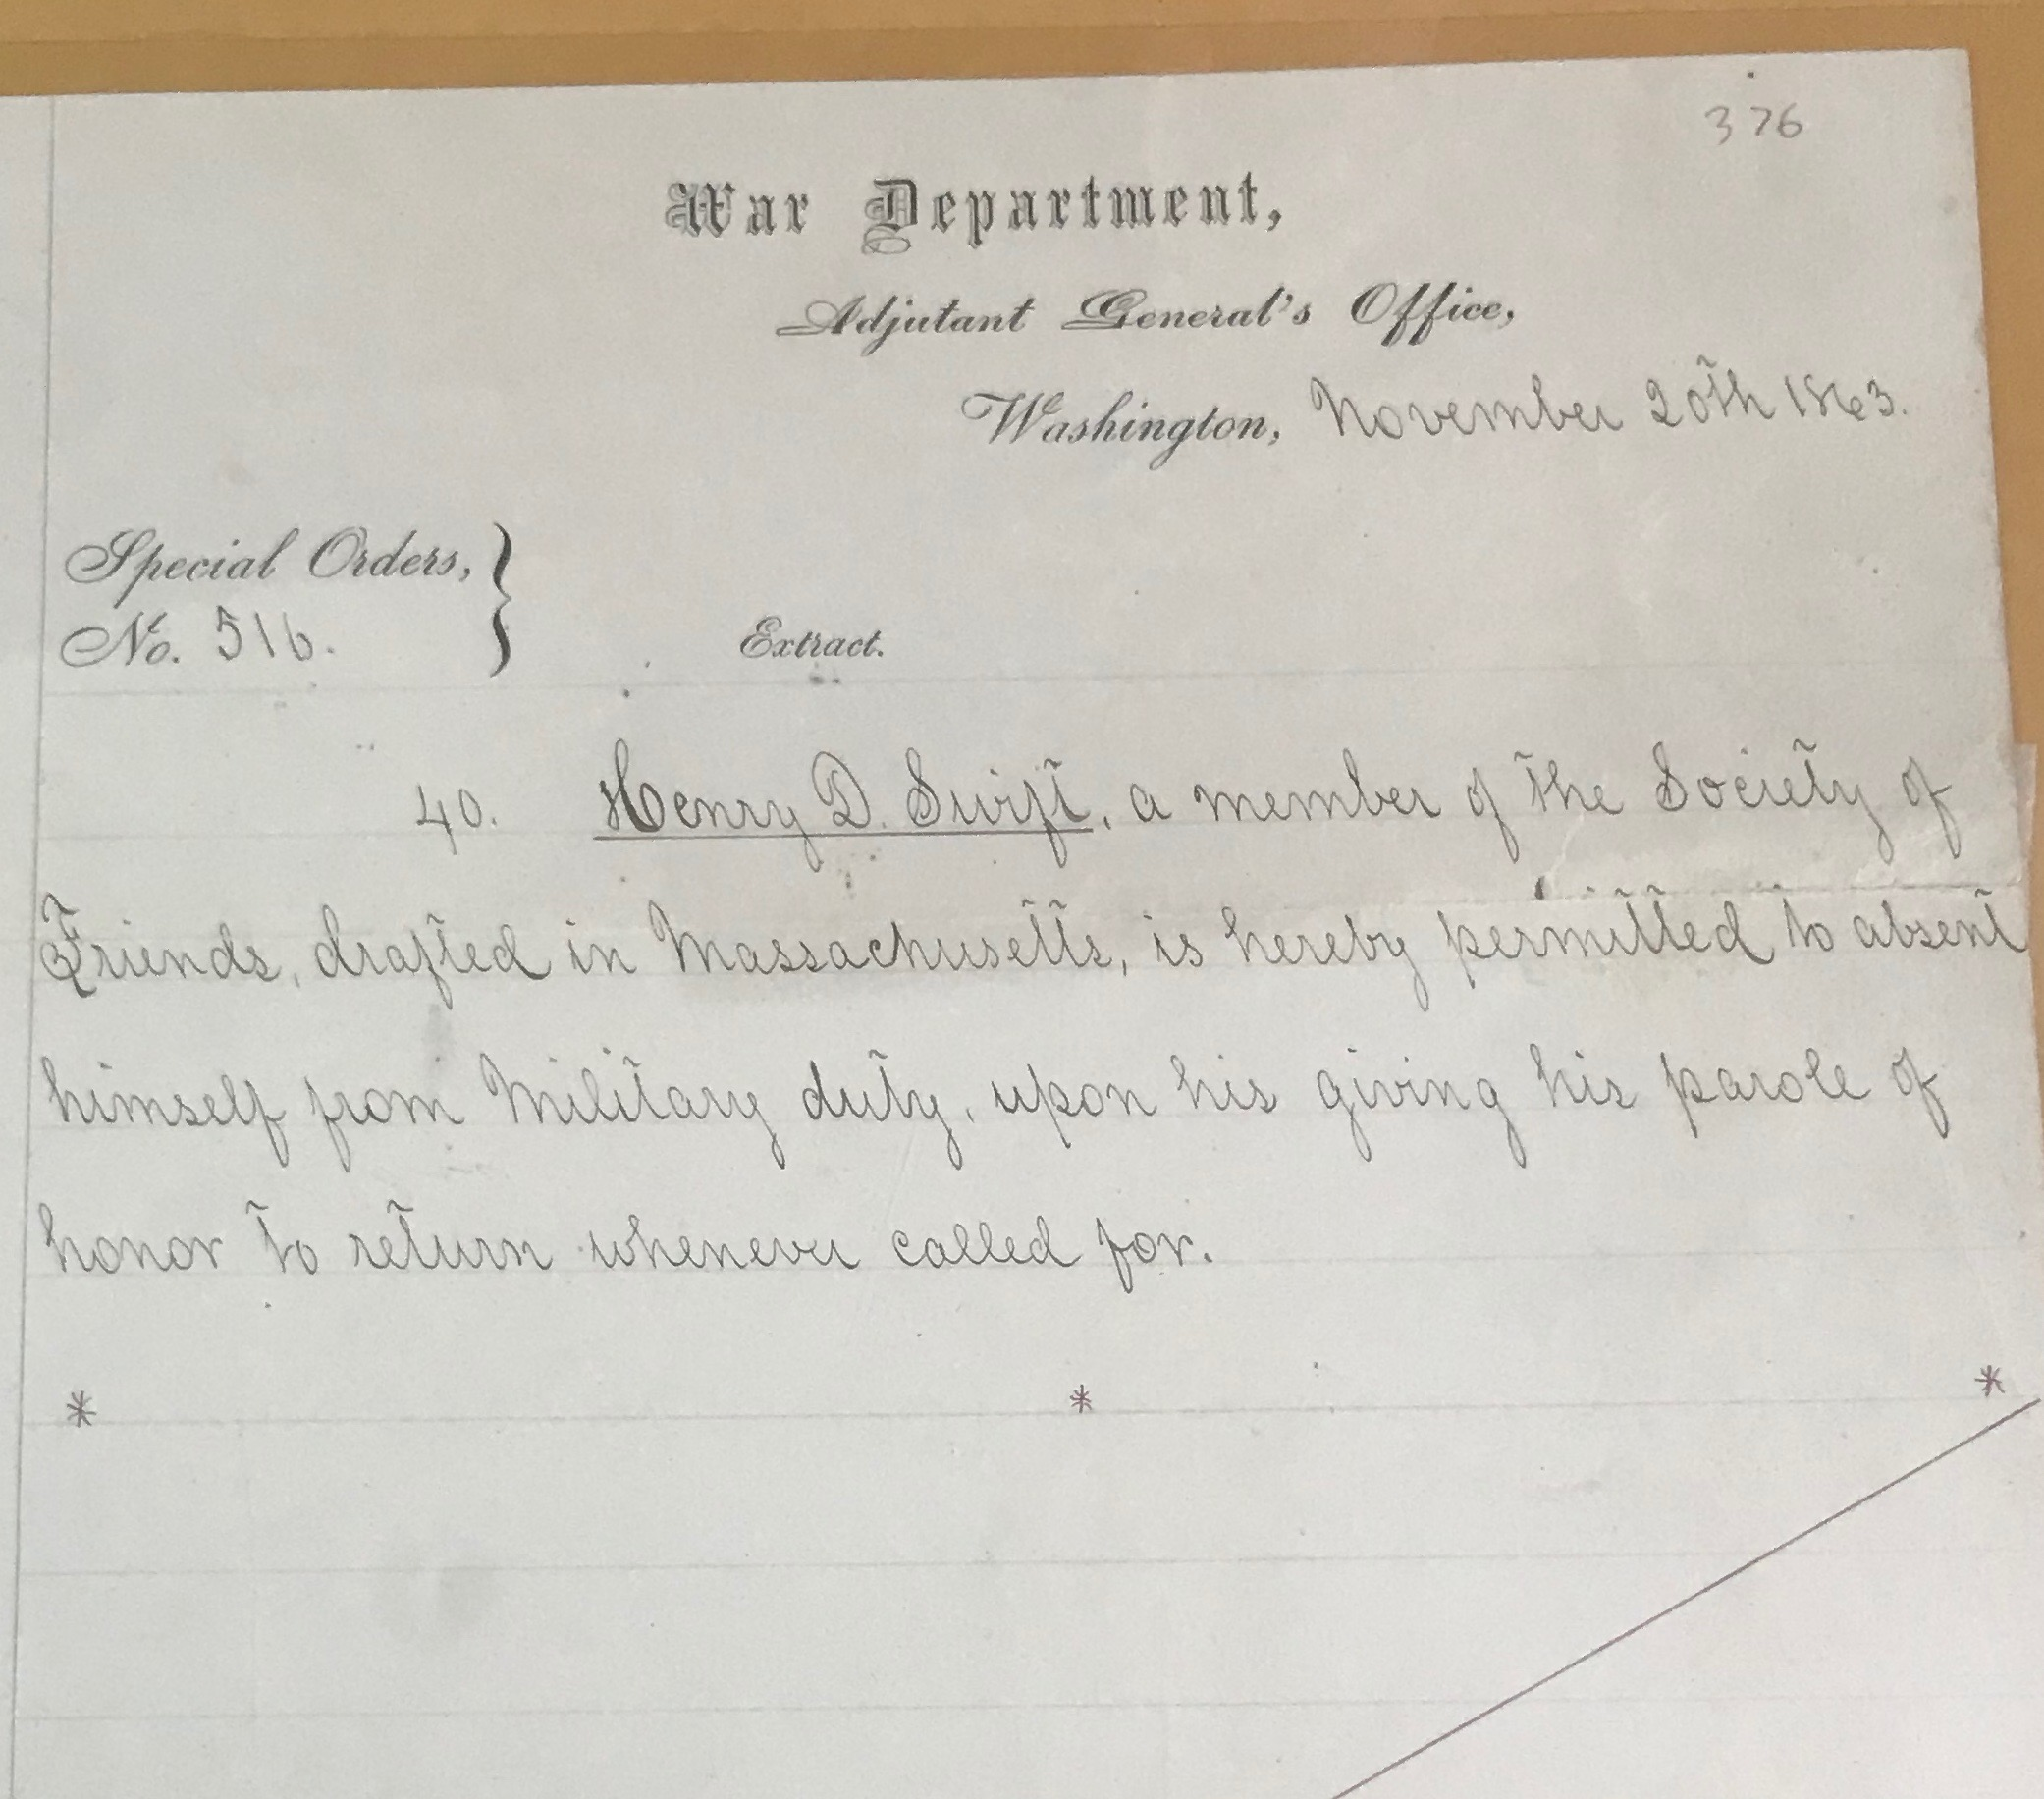 376
War Department,
Adjutant General's Office,
Washington, November 20th 1863.
Special Orders,
No. 516.
Extract.
40. Henry D. Swift, a member of the Society of
Friends, drafted in Massachusetts, is hereby permitted to absent
himself from Military duty, upon his giving his parole of
honor to return whenever called for.
* * *